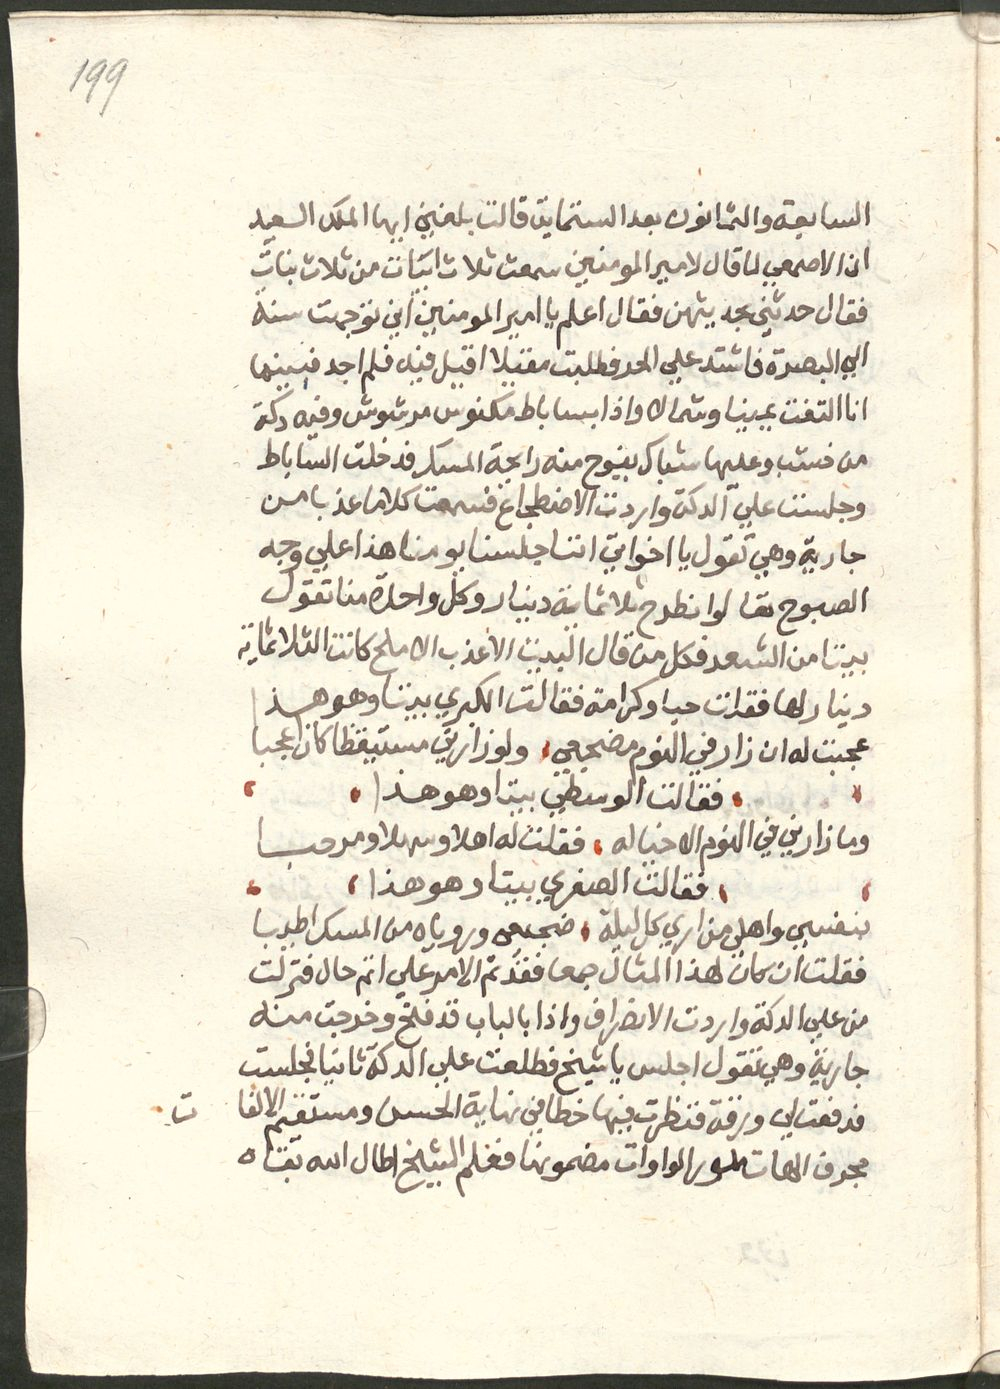 199
السابعة والثمانون بعد الستماية قالت بلغني ايها الملك السعيد
ان الاصمعي لما قال لامير المومنين سمعت ثلاث ابيات من ثلاث بنات
فقال حدثني بحديثهن فقال اعلم يا امير المومنين اني توجهت سنة
الي البصرة فاشتد علي الحر فطلبت مقيلا اقيل فيه فلم اجد فبينما
انا التفت يمينا وشمالا واذا بساباط مكنوس مرشوش وفيه دكة
من خشب وعليها شباك يفوح منه رايحة المسك فدخلت الساباط
وجلست علي الدكة واردت الاضطجاع فسمعت كلاما عذبا من
جارية وهي تقول يا اخواتي اننا جلسنا يومنا هذا علي وجه
الصبوح تعالوا نطرح ثلاثماية دينار وكل واحدة منا تقول
بيتا من الشعر فكل من قال البيت الاعذب الاملح كانت الثلاثماية
دينار لها فقلن حبا وكرامة فقالت الكبري بيتا وهو هذا
عجبت له ان زار في النوم مضجعي ولو زارني مستيقظا كان اعجبا
فقالت الوسطي بيتا وهو هذا
وما زارني في النوم الا خياله فقلت له اهلا وسهلا ومرحبا
فقالت الصغري بيتا وهو هذا
بنفسي واهلي من اري كل ليلة ضجيعي ورياه من المسك اطيبا
فقلت ان كان لهذا المثال جمعا فقد تم الامر علي اتم حال فنزلت
من علي الدكة واردت الانصراف واذا بالباب قد فتح وخرجت منه
جارية وهي تقول اجلس يا شيخ فطلعت علي الدكة ثانيا فجلست
فدفعت لي ورقة فنظرت فيها خطا في نهاية الحسن ومستقيم الالفا
ت
مجوف الهات الواوات مضمونها فعلم الشيخ اطال الله بقاه